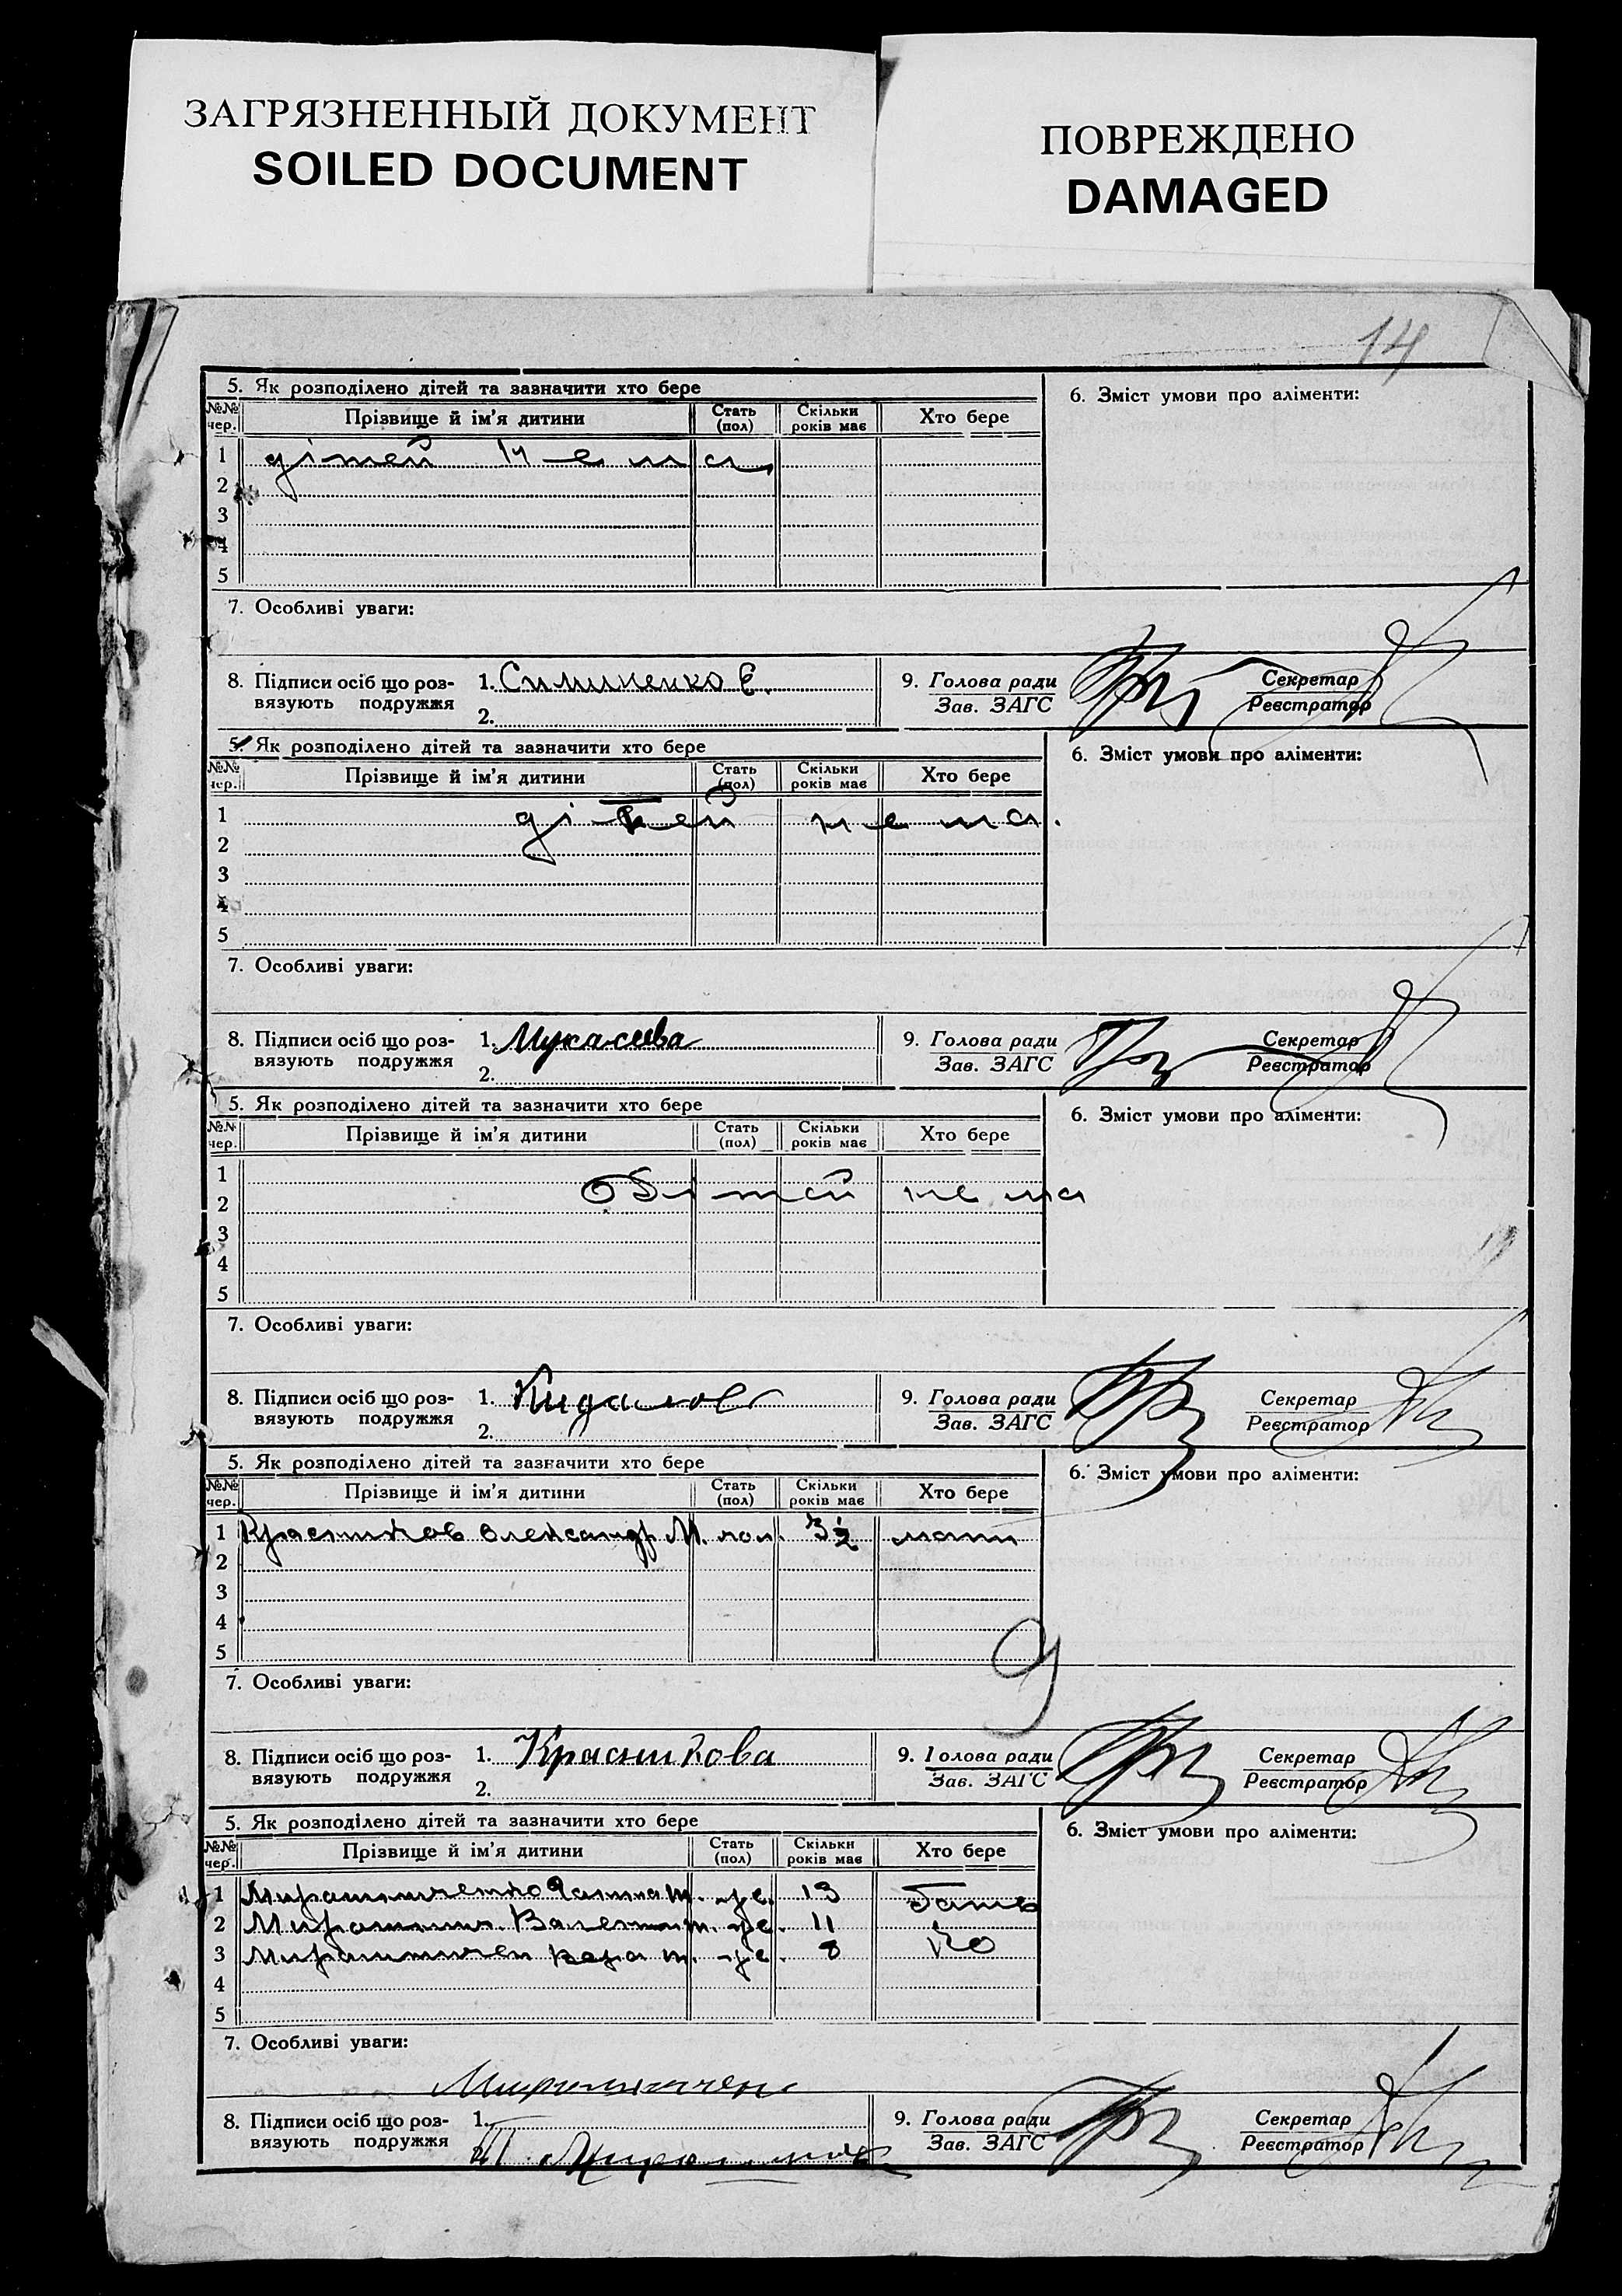 ЗАГРЯЗНЕННЫЙ ДОКУМЕНТ
SOILED DOCUMENT
ПОВРЕЖДЕНО
DAMAGED
14
5. Як розподілено дітей та зазначити хто бере
6. Зміст умови про аліменти:
№№ чер. Прізвище й ім'я дитини Стать (пол) Скільки років має Хто бере
1 дітей нема
2
3
4
5
7. Особливі уваги:
8. Підписи осіб що роз-
вязують подружжя
1. Симиненко Є.
2.
9. Голова ради
Зав. ЗАГС
Секретар
Реєстратор
5. Як розподілено дітей та зазначити хто бере
6. Зміст умови про аліменти:
№№ чер. Прізвище й ім'я дитини Стать (пол) Скільки років має Хто бере
1 дітей нема.
2
3
4
5
7. Особливі уваги:
8. Підписи осіб що роз-
вязують подружжя
1. Мукасеева
2.
9. Голова ради
Зав. ЗАГС
Секретар
Реєстратор
5. Як розподілено дітей та зазначити хто бере
6. Зміст умови про аліменти:
№№ чер. Прізвище й ім'я дитини Стать (пол) Скільки років має Хто бере
1
2 Дітей нема
3
4
5
7. Особливі уваги:
8. Підписи осіб що роз-
вязують подружжя
1.
2.
9. Голова ради
Зав. ЗАГС
Секретар
Реєстратор
5. Як розподілено дітей та зазначити хто бере
6. Зміст умови про аліменти:
№№ чер. Прізвище й ім'я дитини Стать (пол) Скільки років має Хто бере
1 Красніков Олександр М. чол. 3½ мати
2
3
4
5
9
7. Особливі уваги:
8. Підписи осіб що роз-
вязують подружжя
1. Краснікова
2.
9. Голова ради
Зав. ЗАГС
Секретар
Реєстратор
5. Як розподілено дітей та зазначити хто бере
6. Зміст умови про аліменти:
№№ чер. Прізвище й ім'я дитини Стать (пол) Скільки років має Хто бере
1 Мирошниченко Галина т. же. 13 Бать
2 Мирошнич. Валентин т. же. 11 ко
3 Мирошничен вера т. же. 8
4
5
7. Особливі уваги:
Мирошничен
8. Підписи осіб що роз-
вязують подружжя
1.
2.
9. Голова ради
Зав. ЗАГС
Секретар
Реєстратор